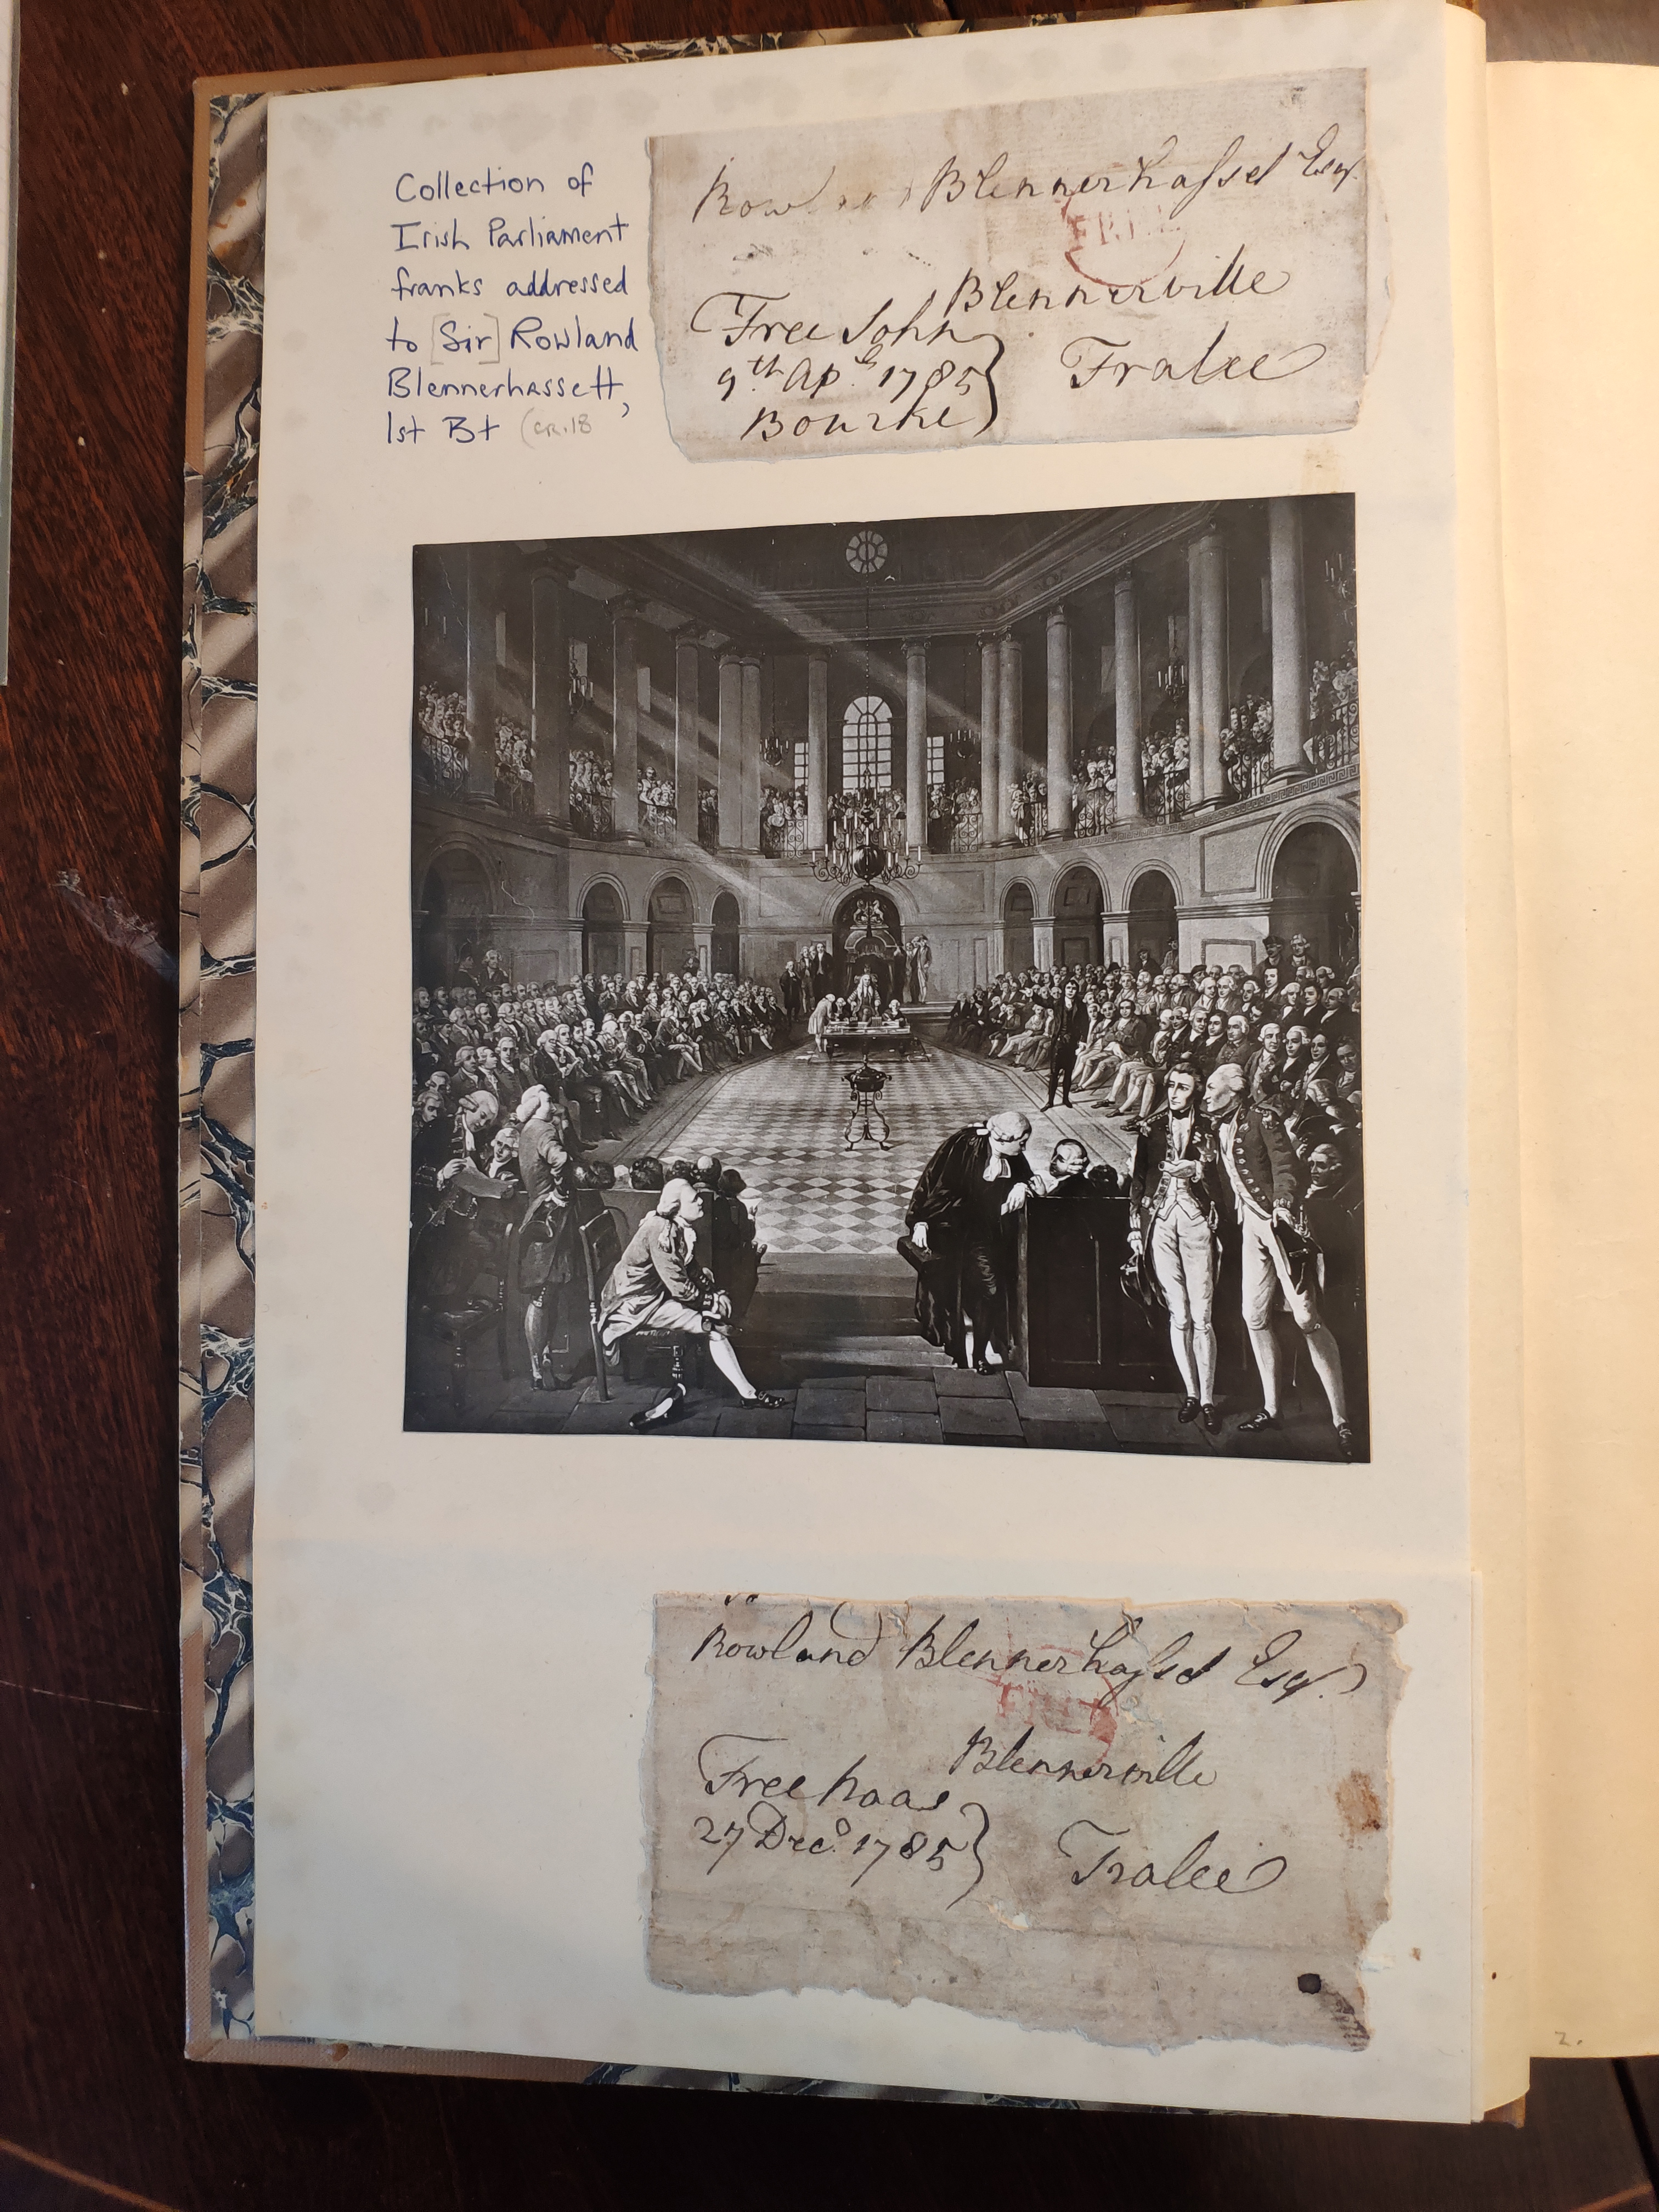 Collection of
Irish Parliament
franks addressed
to [Sir] Rowland
Blennerhassett,
1st Bt (cr. 18
Rowland Blennerhasset Esqr.
FREE
Blennerville
Free John
9th Apl. 1785
Bourke
Tralee
Rowland Blennerhasset Esqr.
FREE
Blennerville
Free Naas
27 Decr. 1785
Tralee
2.